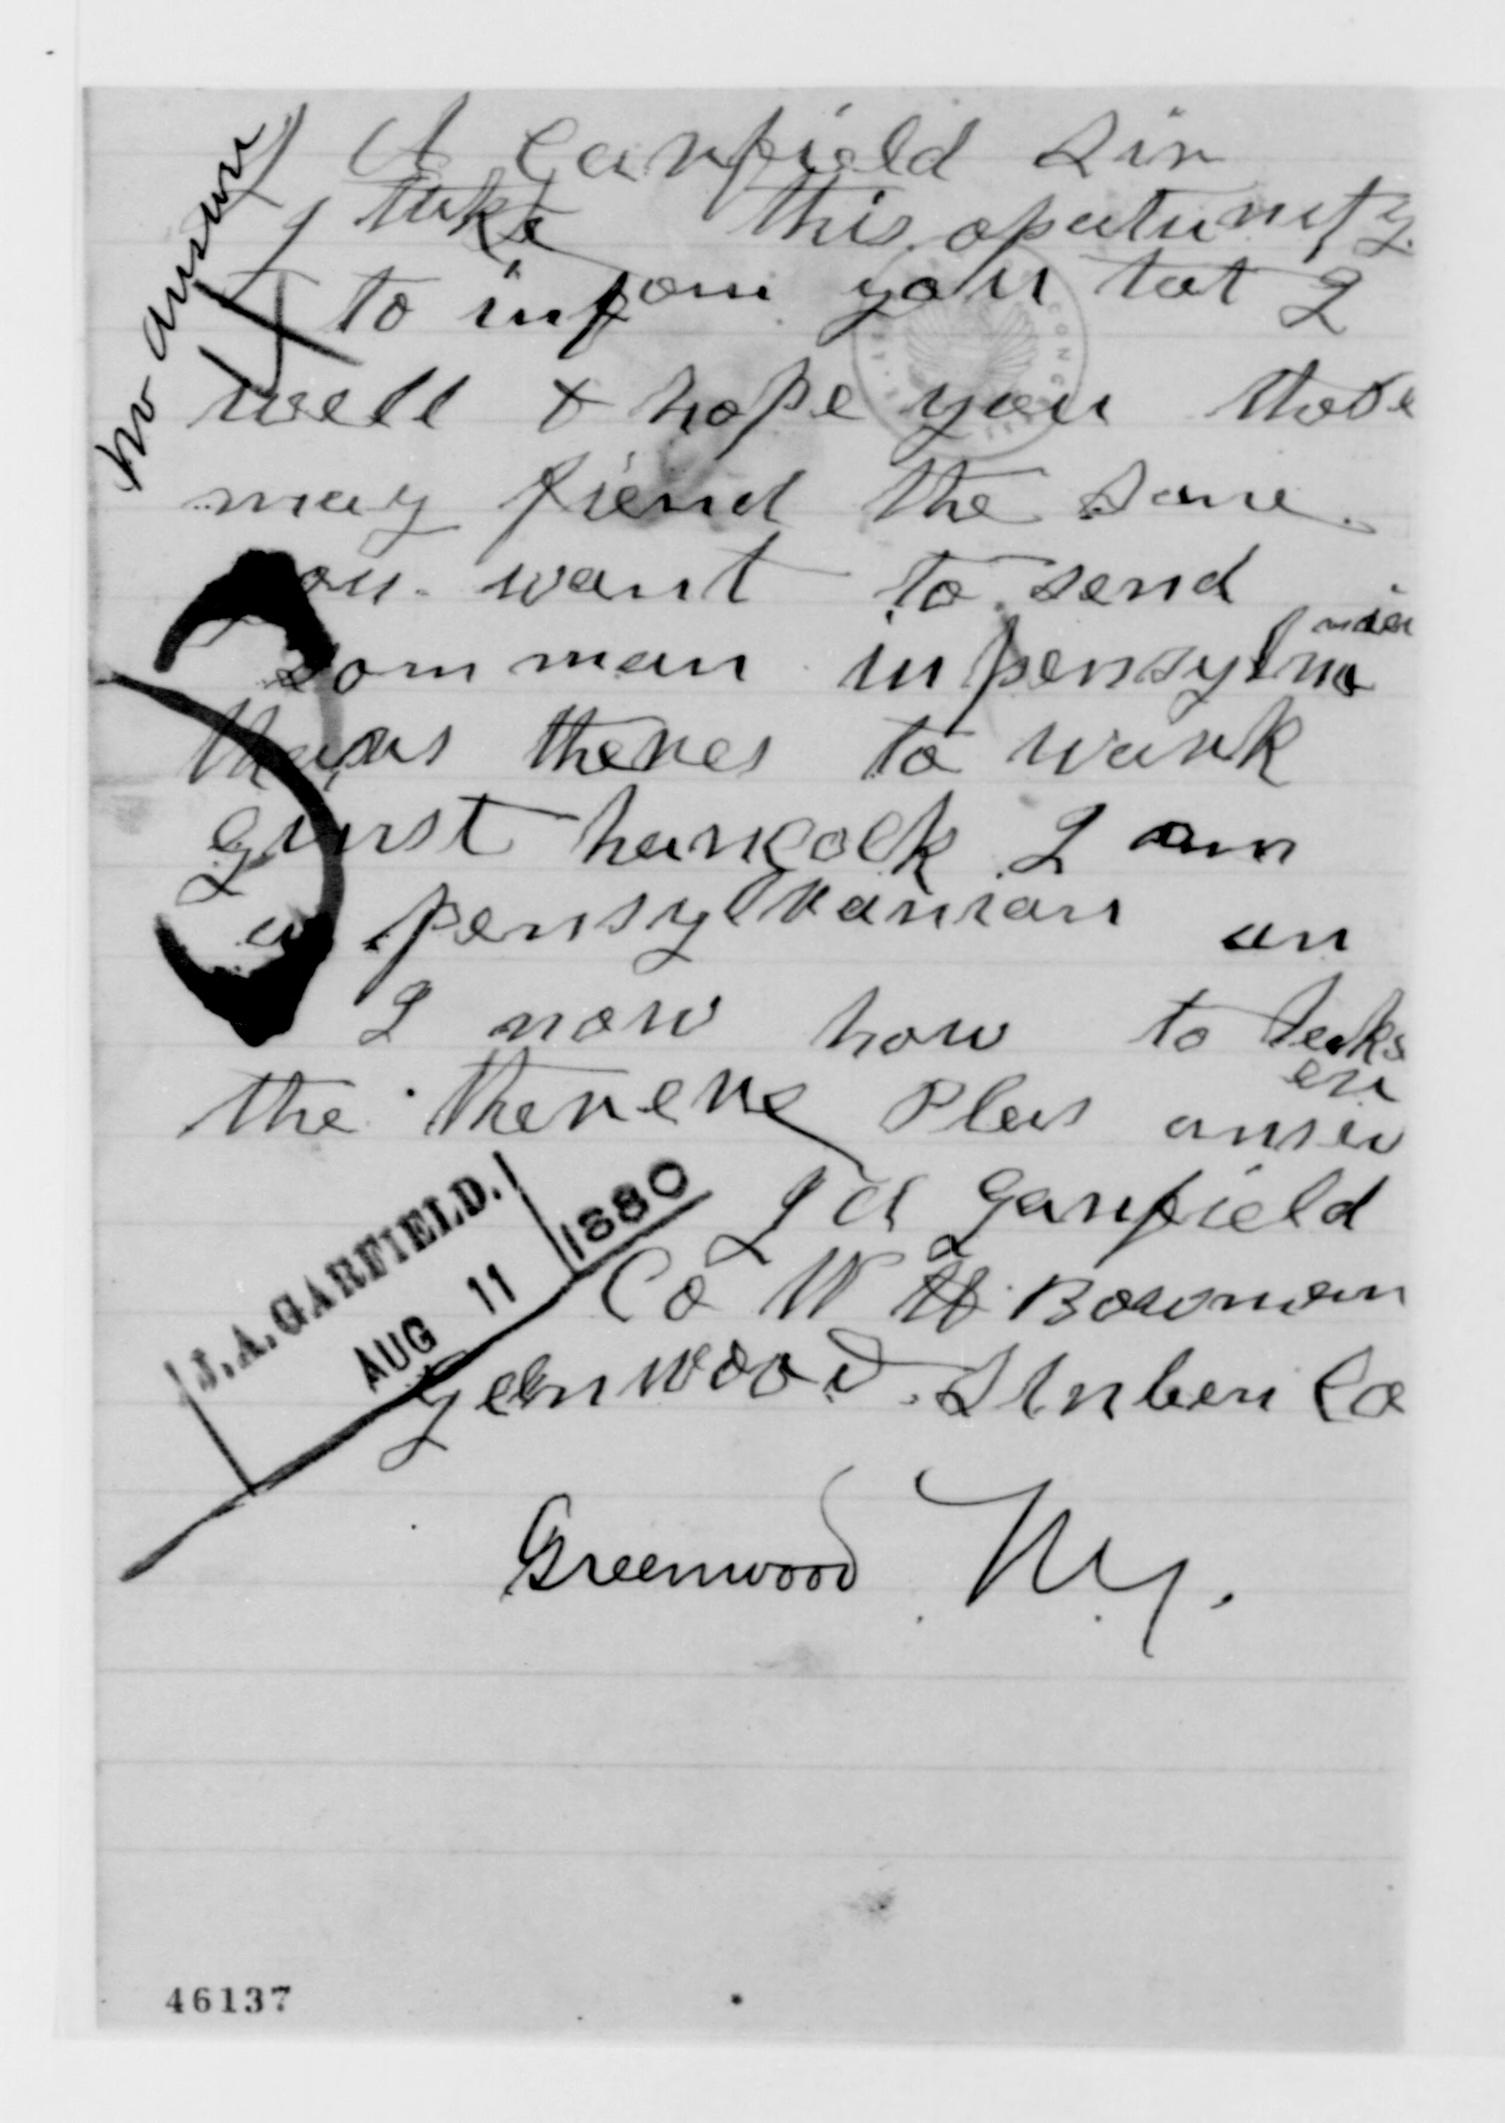 no answer
J A Garfield Sir
I take this opatunity
to infom you tat I
well & hope you thove
may fiend the same
you want to send
som man in pensylvnia
theres to wark
ginst hancock I am
a pensylvanian an
I now how to
the Pleas answer
J A Garfield
Co W H Bowman
Geenwood Stuben Co
Greenwood N.Y.
J. A. GARFIELD.
AUG 11 1880
46137